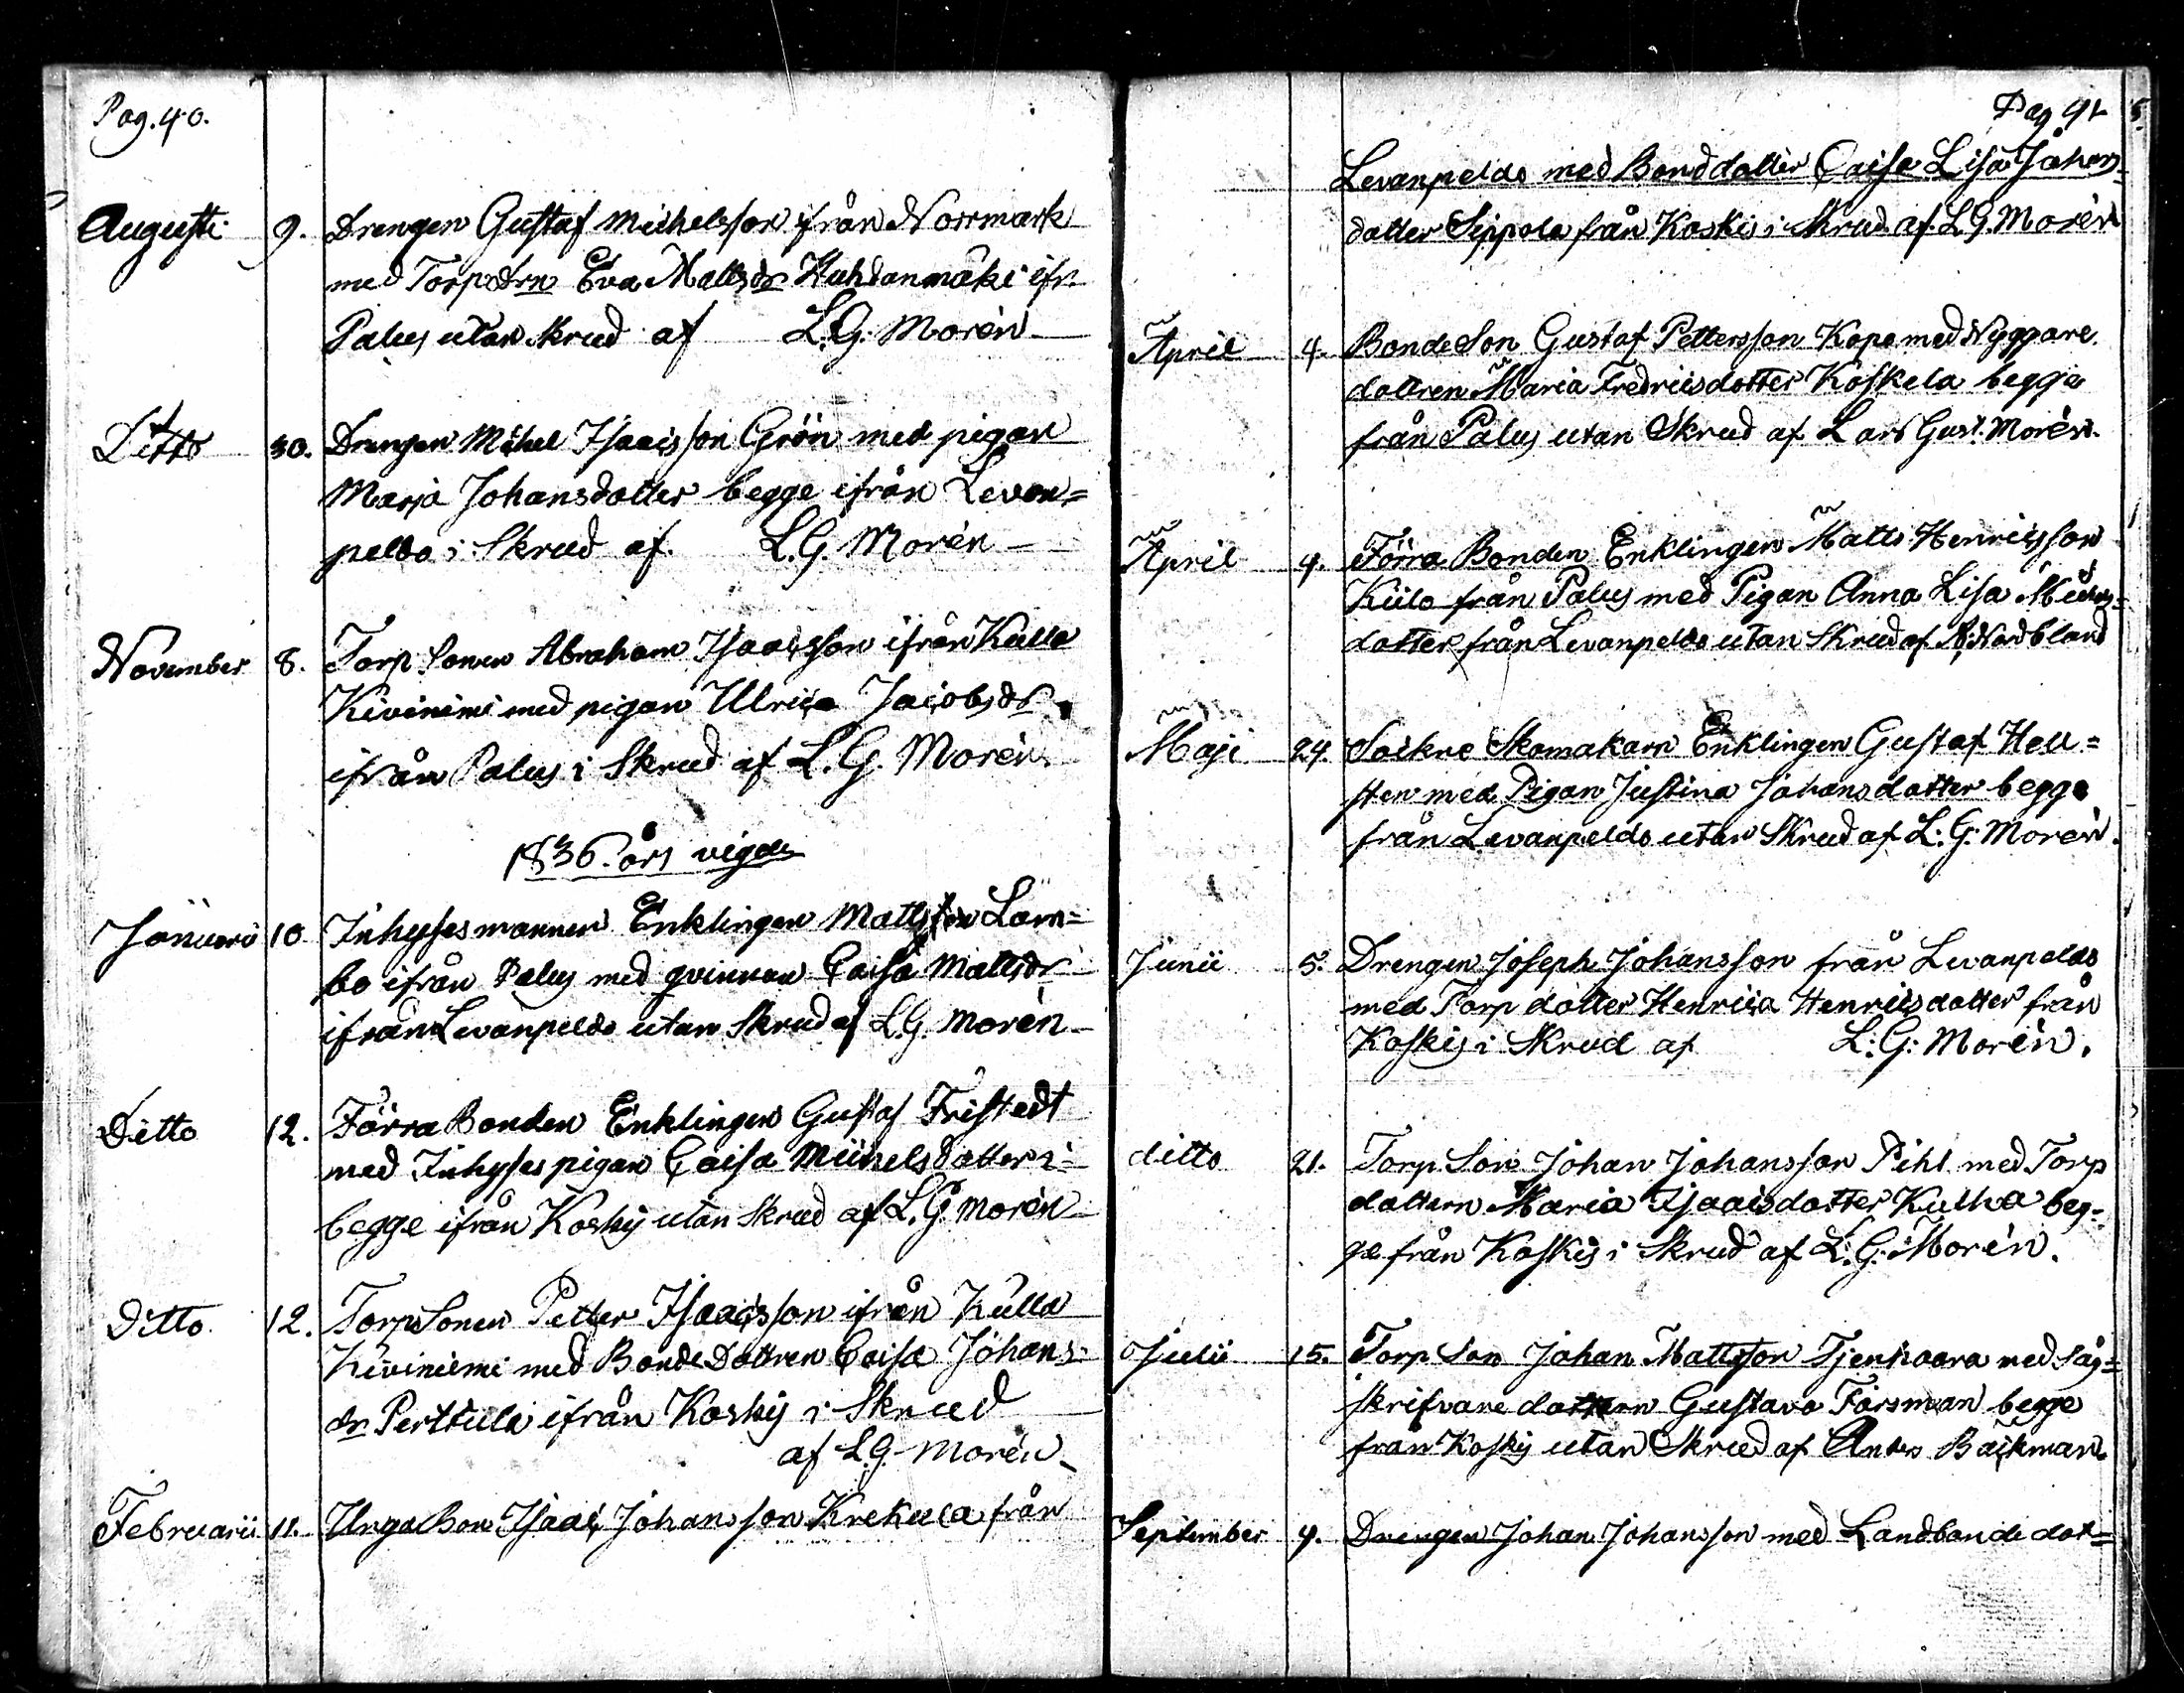 Pag. 40.
Augusti 9. Drengen Gustaf Michelsson från Norrmark
med Torpedrn Eva Mattsdr Huhdanmäki ifr.
Palus utan skrud af L.G. Morén
Ditto 30. Drengen Michel Isacsson Grön med pigan
Marja Johansdotter begge ifrån Levan=
peldo i Skrud af L.G. Morén
November 8. Torp Sonen Abraham Isacsson ifrån Kulla
Kivinimi med pigan Ulrica Jacobsdr
ifrån Palus i Skrud af L.G. Morén.
1836 års vigde
Januari 10 Inhysesmannen Enklingen Mattsson Lam=
bo ifrån Palus med qvinnan Caisa Mattsdr
ifrån Levanpeldo utan Skrud af L.G. Morén
Ditto 12. Förra Bonden Enklingen Gustaf Fristedt
med Inhyses pigan Caisa Michelsdotter
begge ifrån Koskis utan Skrud af L.G. Morén
Ditto 12. Torp Sonen Petter Isacsson ifrån Kulla
Kiviniemi med BondeDottren Caisa Johans=
dr Perttula ifrån Koskis i Skrud
af L.G. Morén
Februarii 11. Unga Bon Isaac Johansson Krekula från
Pag 41
Levanpeldo med Bonddotter Caisa Lisa Johans=
dotter Sippola från Koskis i Skrud af L.G. Morén
April 4. BondeSon Gustaf Pettersson Kopo med Nyggare
dottren Maria Fredricsdotter Koskela begge
från Palus utan Skrud af Lars Gust. Morén.
April 4. Förra Bonden Enklingen Matts Henricsson
Kiilo från Palus med Pigan Anna Lisa Michels=
dotter från Levanpeldo utan Skrud af Nordbland
Maji 24. Sockne Skomakarn Enklingen Gustaf Hell=
sten med Pigan Justina Johansdotter begge
från Levanpeldo utan Skrud af L:G: Morén.
Junii 5. Drengen Joseph Johansson från Levanpeldo
med Torp dotter Henrica Henricsdotter från
Koskis i Skrud af L:G: Morén.
ditto 21. Torp Son Johan Johansson Pihl med Torp
dottern Maria Isaacsdotter Kulha beg=
ge från Koskis i Skrud af L.G. Morén.
Julii 15. Torp Son Johan Mattsson Tjenhaara med Såg=
skrifvare dottern Gustava Forsman begge
från Koskis utan Skrud af Anders Backman
September 4. Drengen Johan Johansson med Landbonde dot=